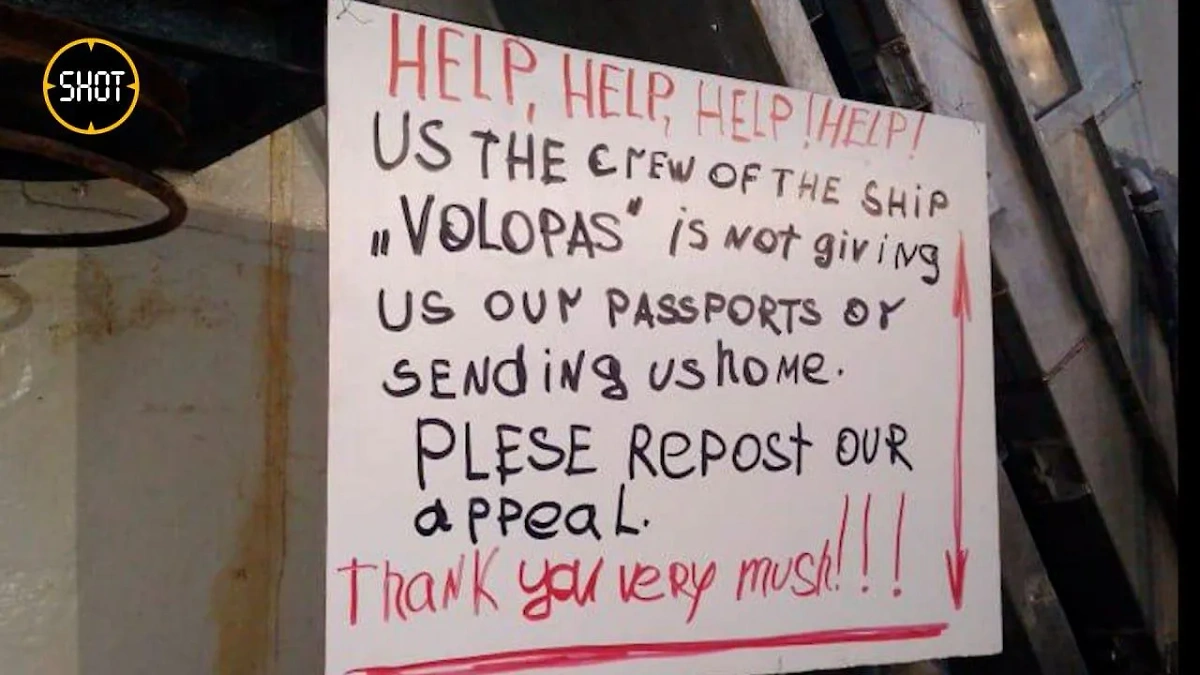 SHOT
HELP, HELP, HELP! HELP!
US THE CREW OF THE SHIP
„VOLOPAS" is NOT giving
US OUR PASSPORTS OR
SENDING US HOME.
PLESE REPOST OUR
appeal.
THANK you very mush!!!